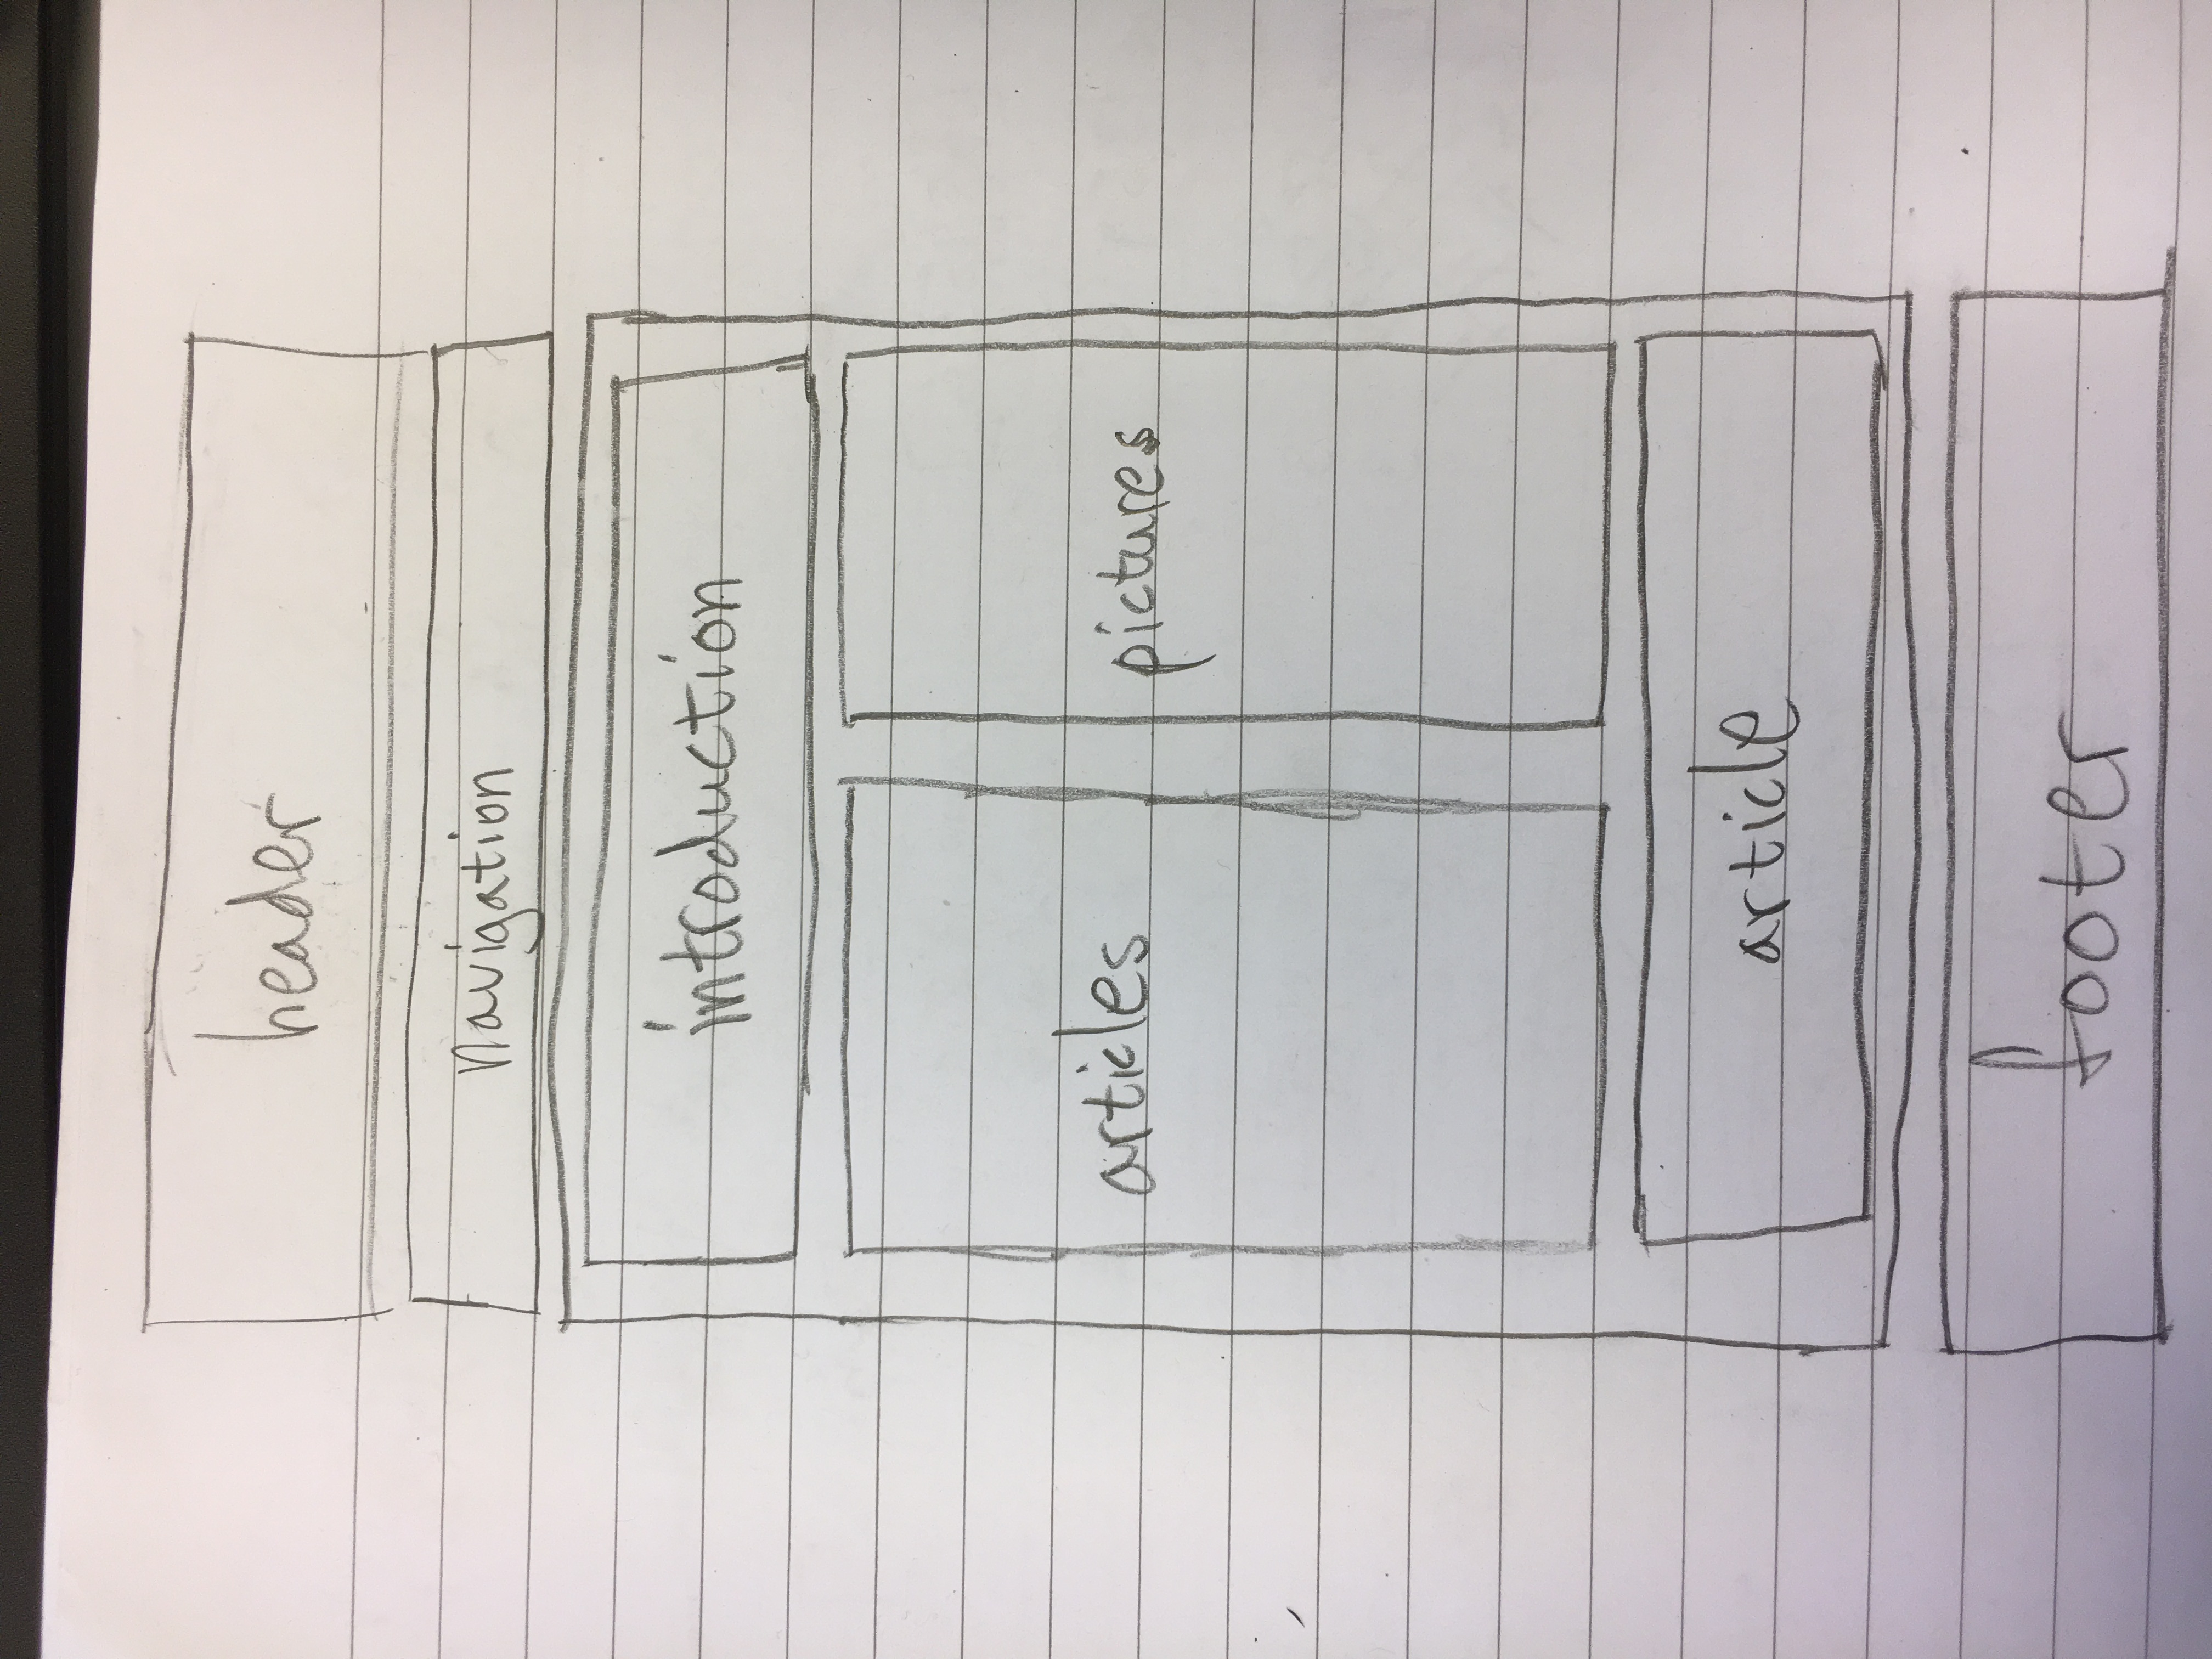 header
navigation
introduction
articles
pictures
article
footer